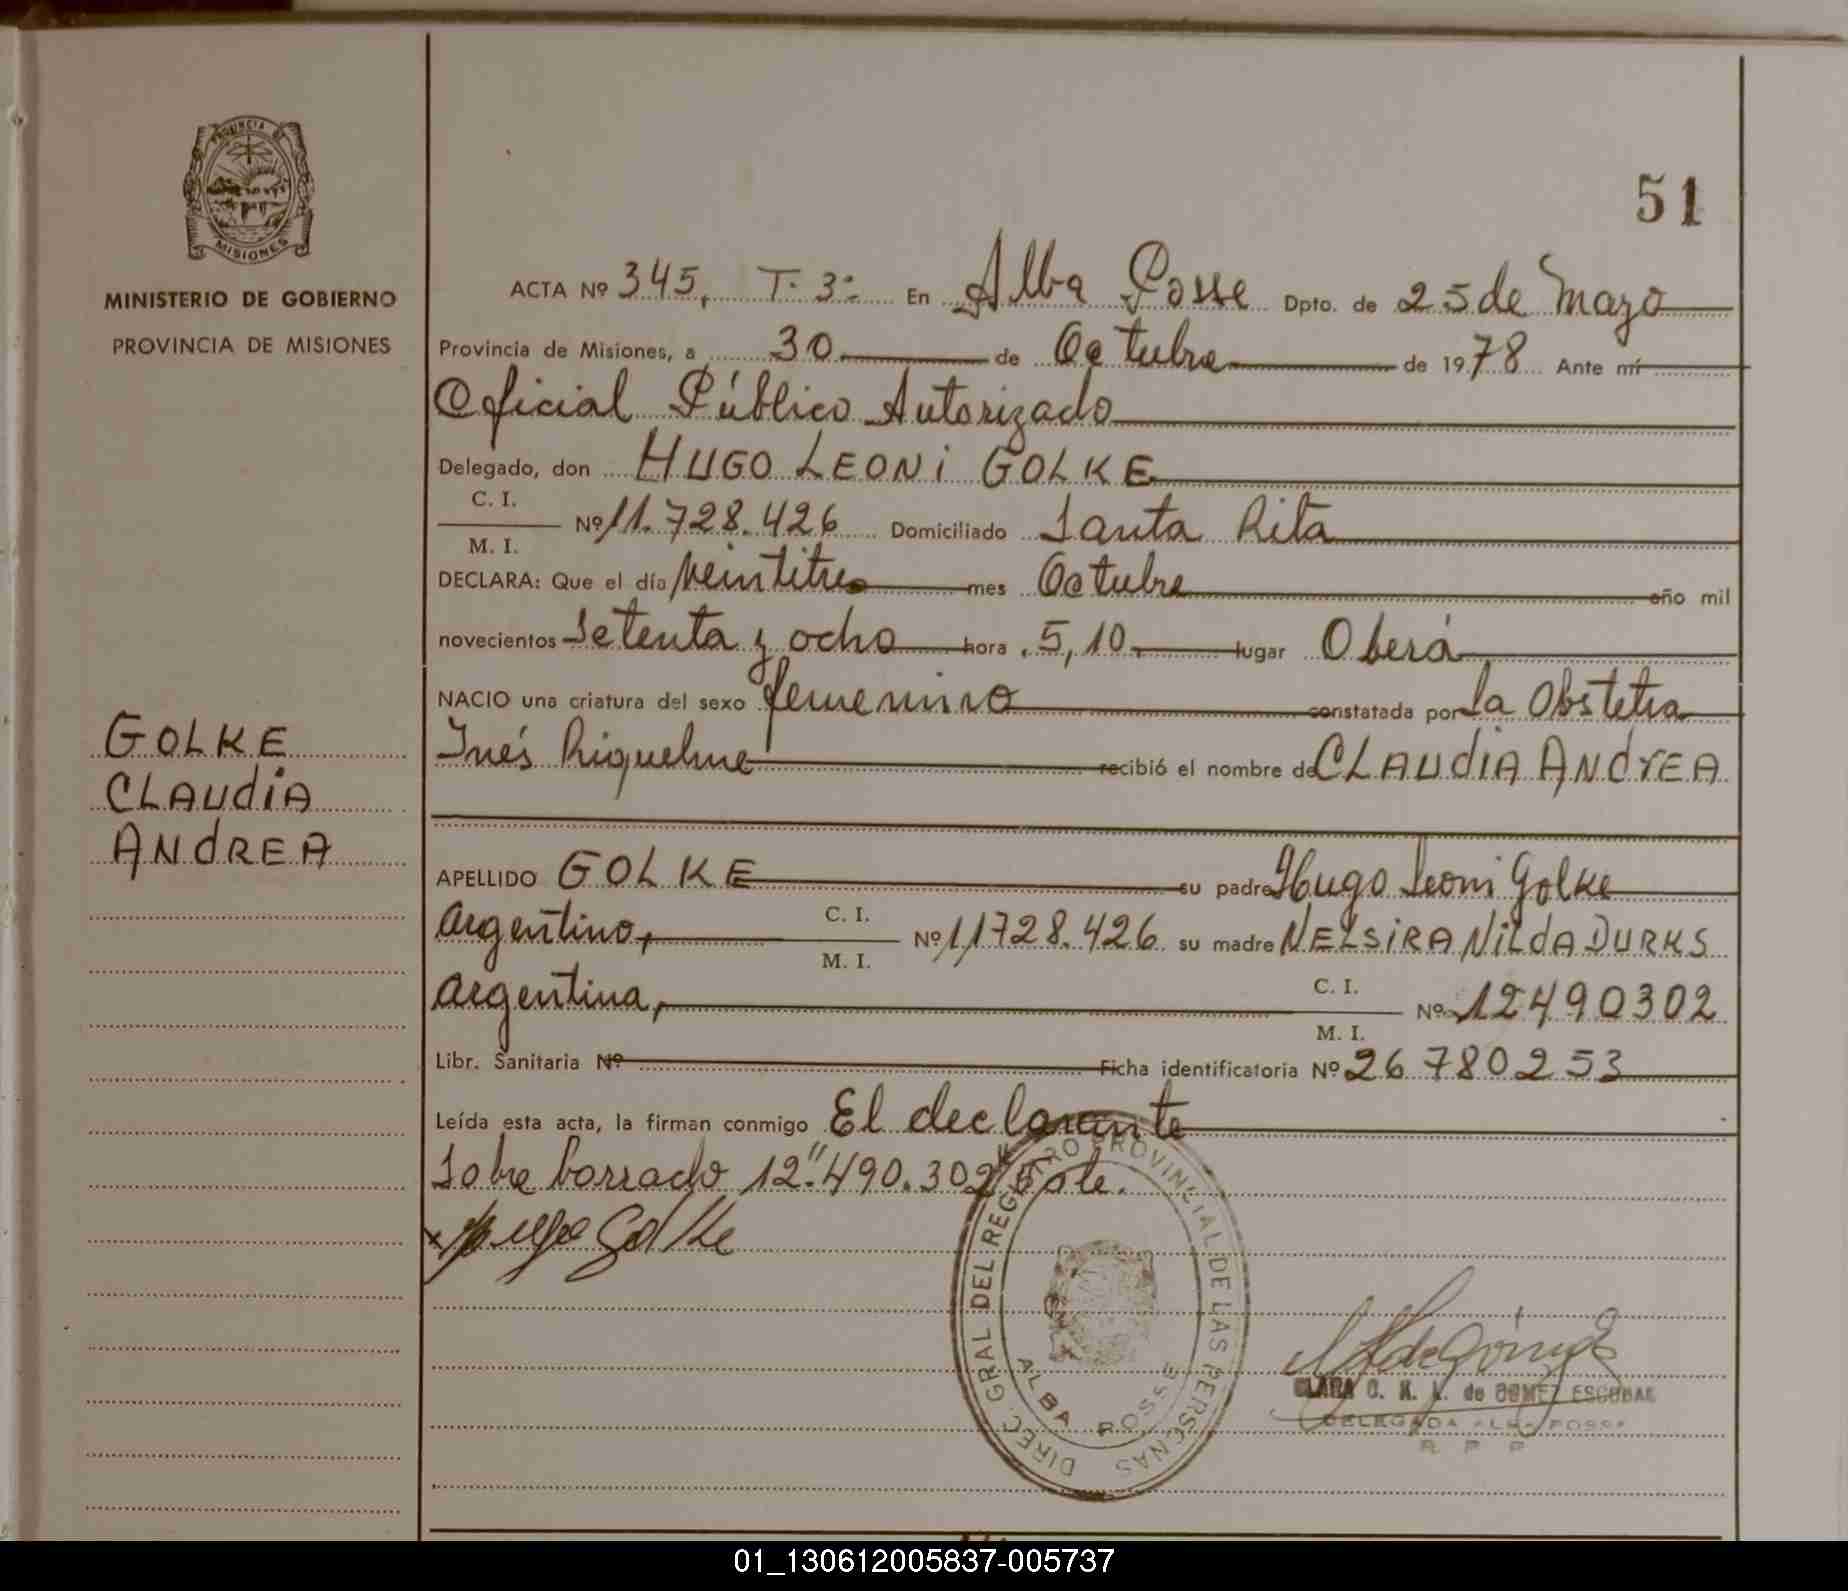 PROVINCIA DE
MISIONES
MINISTERIO DE GOBIERNO
PROVINCIA DE MISIONES
GOLKE
CLAUdiA
ANdREA
51
ACTA Nº 345, T. 3º En Alba Posse Dpto. de 25 de Mayo
Provincia de Misiones, a 30 de Octubre de 1978 Ante mí
Oficial Público Autorizado
Delegado, don HUGO LEONi GOLKE
C. I.
M. I. Nº 11.728.426 Domiciliado Santa Rita
DECLARA: Que el día veintitres mes Octubre año mil
novecientos setenta y ocho hora 5,10 lugar Oberá
NACIO una criatura del sexo femenino constatada por la Obstetra
Inés Riquelme recibió el nombre de CLAUdiA ANdrEA
APELLIDO GOLKE su padre Hugo Leoni Golke
argentino, C. I.
M. I. Nº 11728.426 su madre NELSiRA NiLdA DURKS
argentina, C. I.
M. I. Nº 12490302
Libr. Sanitaria Nº Ficha identificatoria Nº 26780253
Leída esta acta, la firman conmigo El declarante
Sobre borrado 12"490.302 Vale.
x Hugo Golke
DIREC. GRAL DEL REGISTRO PROVINCIAL DE LAS PERSONAS
ALBA POSSE
CLARA C. K. de GOMEZ ESCOBAR
DELEGADA ALBA POSSE
R P P
01_130612005837-005737